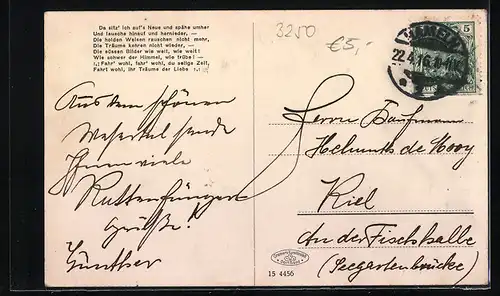 Da sitz' ich auf's Neue und spähe umher
Und lausche hinauf und hernieder, —
Die holden Weisen rauschen nicht mehr,
Die Träume kehren nicht wieder, —
Die süssen Bilder wie weit, wie weit!
Wie schwer der Himmel, wie trübe! —
Fahr' wohl, fahr' wohl, du selige Zeit,
Fahrt wohl, ihr Träume der Liebe
3250
€5,-
HAMELN
22.4.16.
5
Aus dem schönen
Wesertal sende
Ihnen viele
Rattenfänger
grüße!
Günther
Herrn Kaufmann
Helmuth de Mooy
Kiel
An der Fischhalle
(Seegartenbrücke)
15 4456